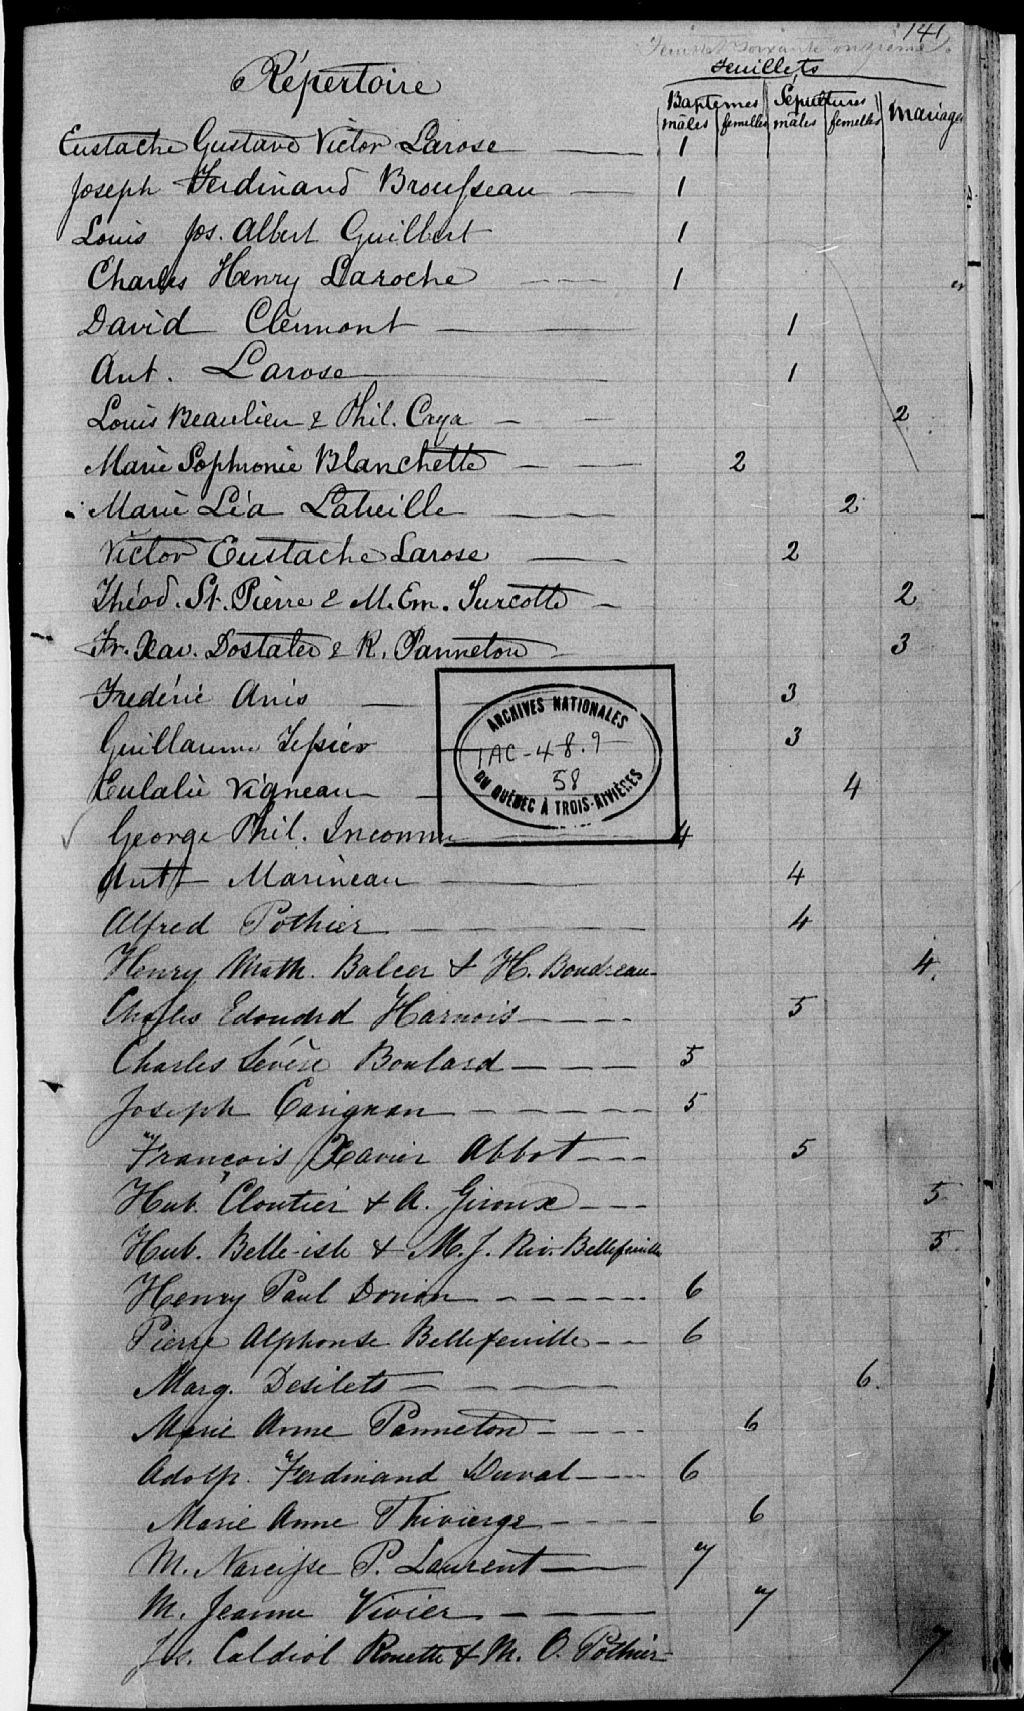 141
Feuillet soixante onzième
Répertoire
Feuillets
Baptêmes Sépultures Mariages
mâles femelles mâles femelles
Eustache Gustave Victor Larose 1
Joseph Ferdinand Brousseau 1
Louis Jos. Albert Guilbert 1
Charles Henry Laroche 1
David Clermont 1
Ant. Larose 1
Louis Beaulieu & Phil. Caya 2
Marie Sophronie Blanchette 2
Marie Léa Latreille 2
Victor Eustache Larose 2
Théod. St. Pierre & M. Em. Turcotte 2
Fr. Xav. Dostaler & R. Panneton 3
Frédéric Anis 3
ARCHIVES NATIONALES
Guillaume Tessier 3
1AC-48.9
58
DU QUÉBEC À TROIS-RIVIÈRES
Eulalie Vigneau 4
George Phil. Inconnu 4
Ant Marineau 4
Alfred Pothier 4
Henry Math. Balcer & H. Boudreau 4.
Charles Edouard Harnois 5
Charles Sévère Boulard 5
Joseph Carignan 5
François Xavier Abbot 5
Hub. Cloutier & A. Giroux 5
Hub. Belle-isle & M. J. Riv. Bellefeuille 5.
Henry Paul Dorion 6
Pierre Alphonse Bellefeuille 6
Marg. Desilets 6.
Marie Anne Panneton 6
Adolp. Ferdinand Duval 6
Marie Anne Thivierge 6
M. Narcisse P. Laurent 7
M. Jeanne Vivier 7
Js. Rouette & M. O. Pothier 7